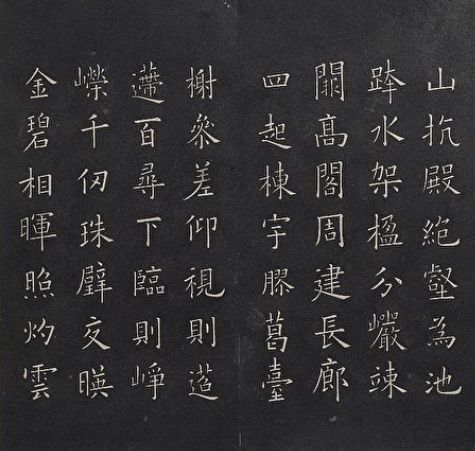 山抗殿絶壑為池
跨水架楹分巖竦
闕高閣周建長廊
四起棟宇膠葛臺
榭參差仰視則迢
遰百尋下臨則崢
嶸千仞珠璧交暎
金碧相暉照灼雲